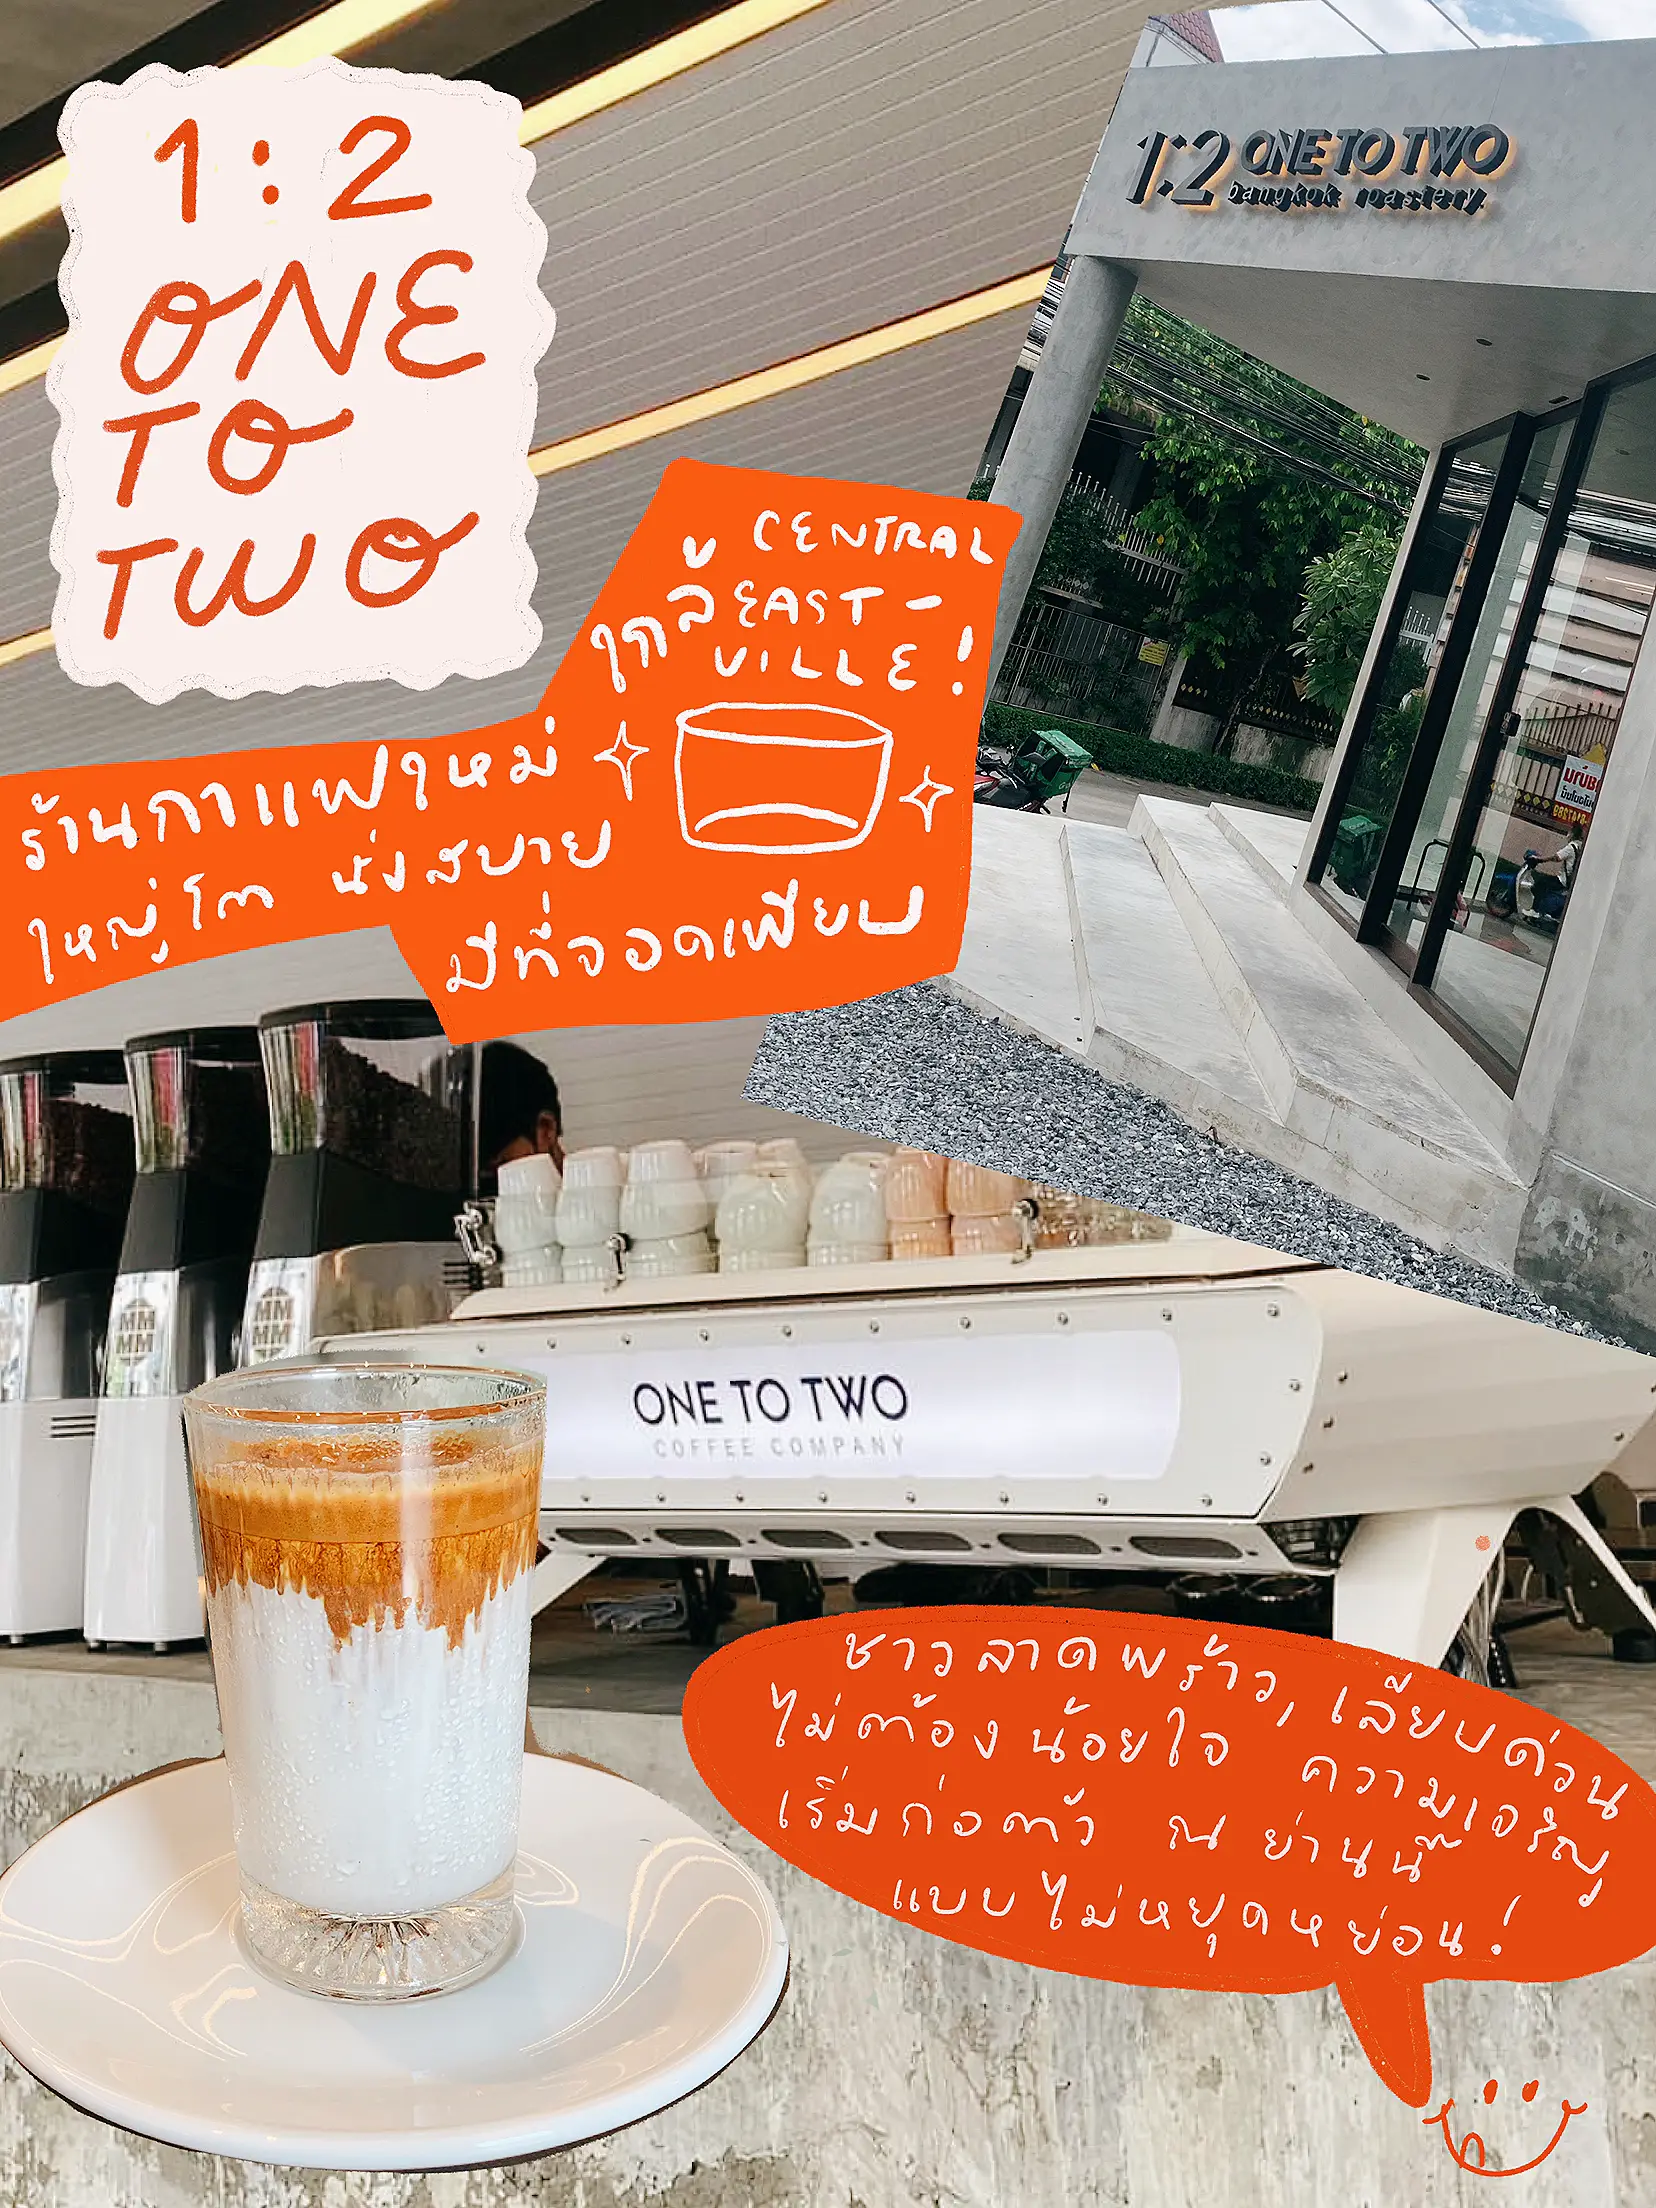 1:2
ONE
TO
TWO
1:2 ONE TO TWO
bangkok roastery
ใกล้ CENTRAL
EAST-
VILLE!
ร้านกาแฟใหม่
ใหญ่โต นั่งสบาย
มีที่จอดเพียบ
MM
MM
MM
MM
ONE TO TWO
COFFEE COMPANY
ชาวลาดพร้าว, เลียบด่วน
ไม่ต้องน้อยใจ ความเจริญ
เริ่มก่อตัว ณ ย่านนี้
แบบไม่หยุดหย่อน!